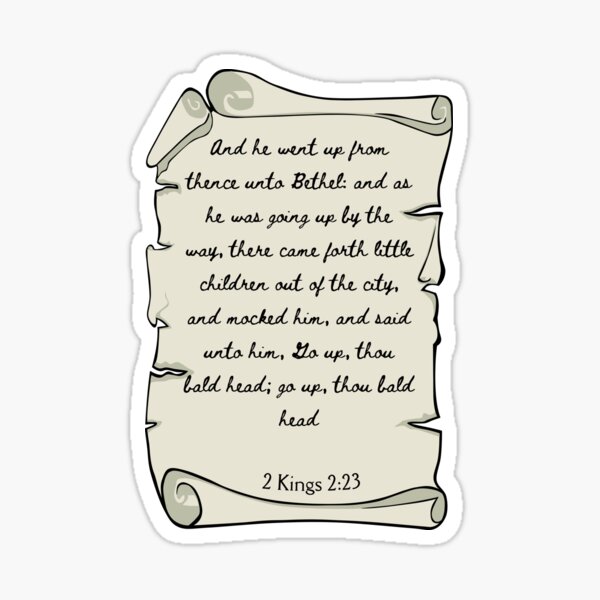 And he went up from
thence unto Bethel: and as
he was going up by the
way, there came forth little
children out of the city,
and mocked him, and said
unto him, Go up, thou
bald head; go up, thou bald
head
2 Kings 2:23